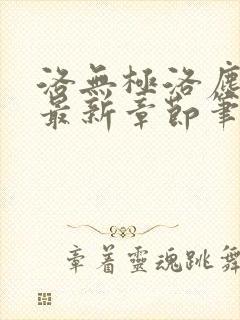 洛無極洛塵
最新章節筆
章著靈魂跳舞